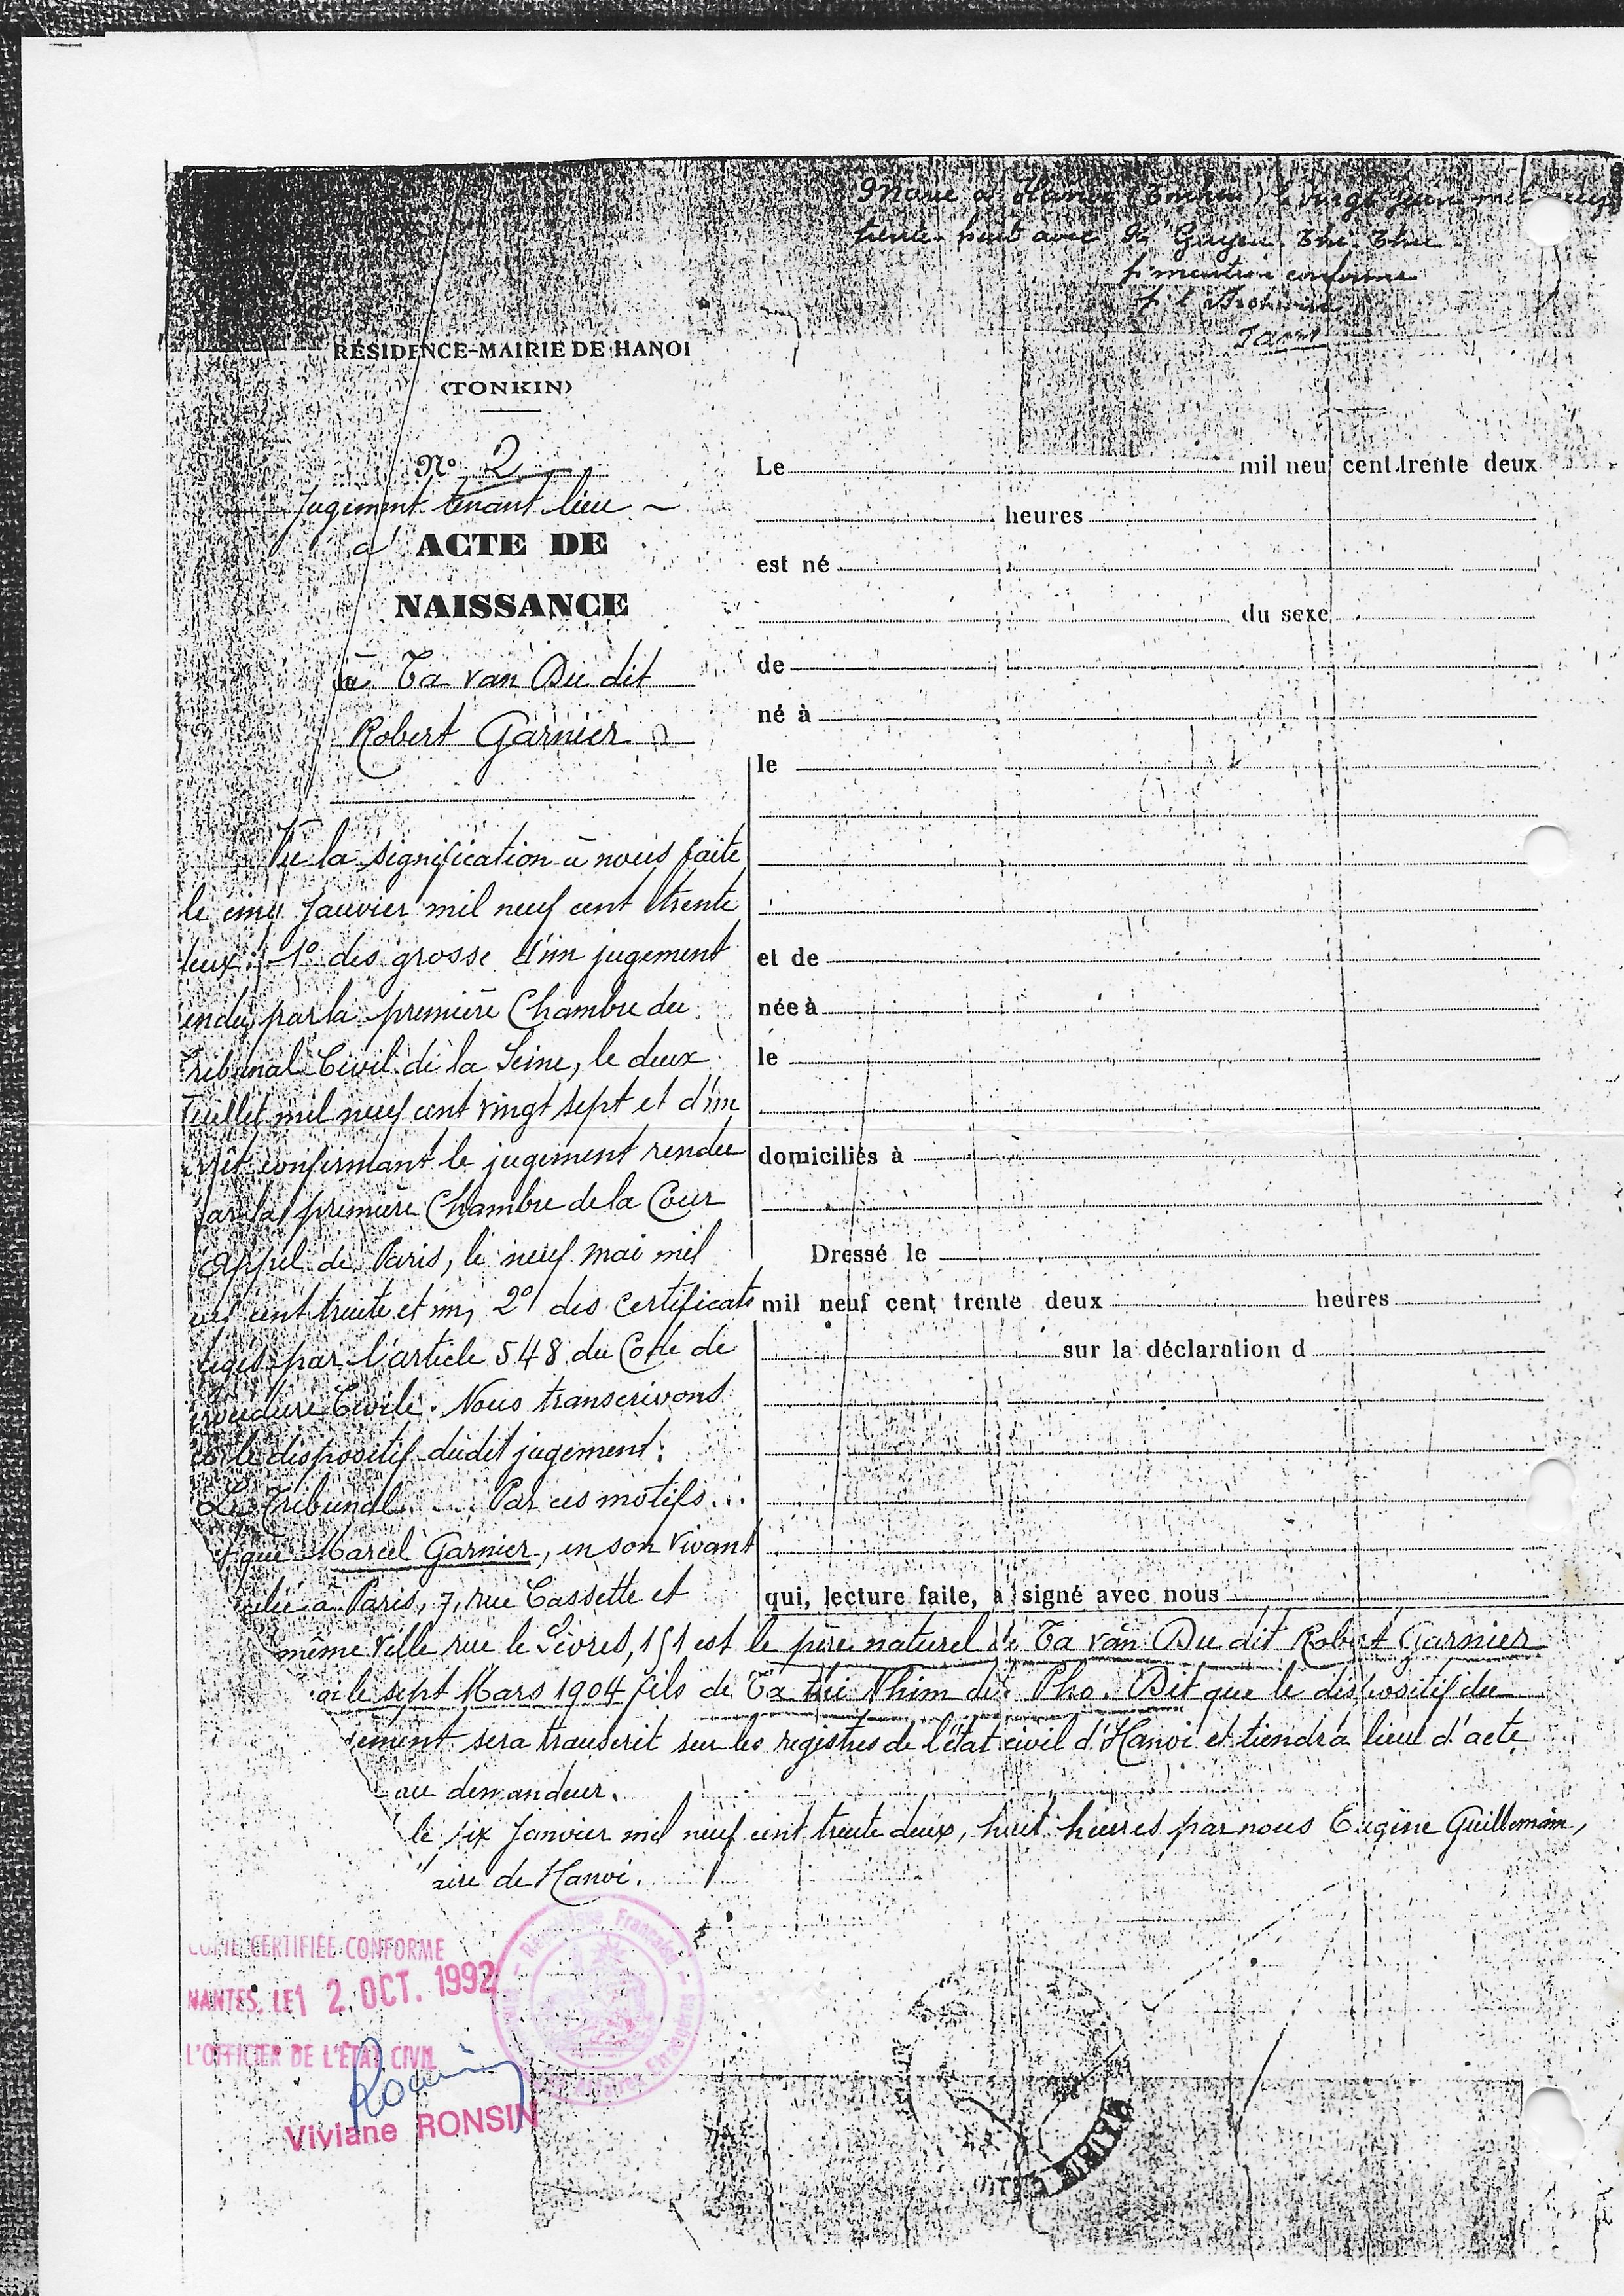 Marié à Hanoi (Tonkin) le vingt juin mil neuf
trente huit avec
Thi Thu
p. mention conforme
RÉSIDENCE-MAIRIE DE HANOI
(TONKIN)
N° 2
Jugement tenant lieu
d' ACTE DE
NAISSANCE
à Ta van Du dit
Robert Garnier
Vu la signification à nous faite
le cinq Janvier mil neuf cent trente
deux : 1° des grosse d'un jugement
rendu par la première Chambre du
Tribunal Civil de la Seine, le deux
Juillet mil neuf cent vingt sept et d'un
arrêt confirmant le jugement rendu
par la première Chambre de la Cour
Appel de Paris, le neuf mai mil
neuf cent trente et un, 2° des certificats
exigés par l'article 548 du Code de
Procédure Civile. Nous transcrivons
le dispositif dudit jugement :
Le Tribunal... Par ces motifs...
que Marcel Garnier, en son vivant
à Paris, 7, rue Cassette et
même ville rue de Sèvres, 151 est le père naturel de Ta van Du dit Robert Garnier
le sept Mars 1904 fils de Ta thi Nhim dit Pho. Dit que le dispositif du
ement sera transcrit sur les registres de l'état civil d'Hanoi et tiendra lieu d'acte
au demandeur.
le six Janvier mil neuf cent trente deux, huit heures par nous Eugène Guillemain,
aire de Hanoi.
Le mil neuf cent trente deux
heures
est né
du sexe
de
né à
le
et de
née à
le
domiciliés à
Dressé le
mil neuf cent trente deux heures
sur la déclaration d
qui, lecture faite, a signé avec nous
COPIE CERTIFIÉE CONFORME
NANTES, LE 12 OCT. 1992
L'OFFICIER DE L'ÉTAT CIVIL
Viviane RONSIN
République Française
Affaires Etrangères